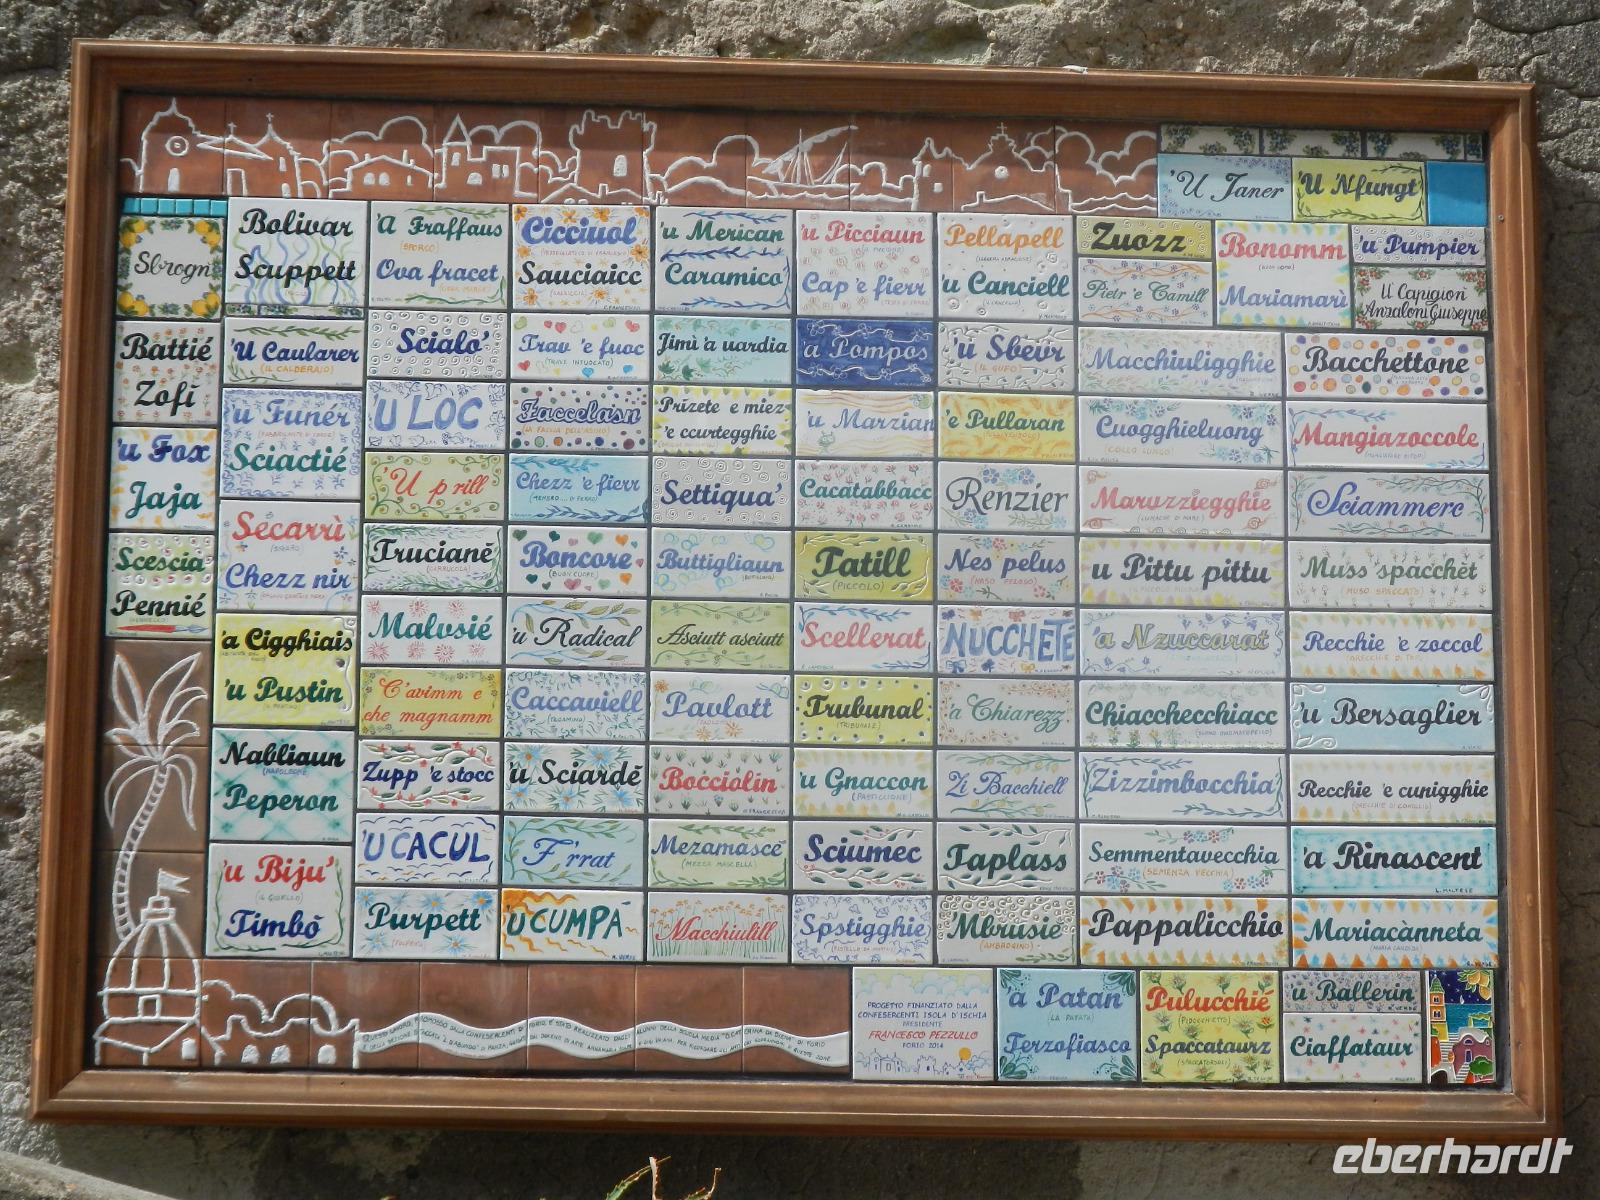 'U Janer
'U 'Nfungt
Sbrogn
Bolivar
Scuppett
'A Fraffaus
(SPORCO)
Ova fracet
Cicciuol
Sauciaicc
'u Merican
Caramico
'u Picciaun
Cap 'e fierr
Pellapell
'u Canciell
Zuozz
Pietr 'e Camill
Bonomm
Mariamarì
'u Pumpier
U' Capigion
Anzaloni Giuseppe
Battié
Zofi
'U Caularer
(IL CALDERAIO)
Scialo'
Trav 'e fuoc
(TRAVE INFUOCATO)
Jimì 'a uardia
'a Pompos
'u Sbeur
(IL GUFO)
Macchiuligghie
Bacchettone
'u Funer
'U LOC
Faccelasn
(LA FACCIA DELL'ASINO)
Prizete e miez
'e ccurtegghie
'u Marzian
'e Pullaran
Cuogghieluong
(COLLO LUNGO)
Mangiazoccole
'u Fox
Jaja
Sciactié
'U prill
Chezz 'e fierr
(MEMBRO.... DI FERRO)
Settiqua'
Cacatabbacc
Renzier
Maruzziegghie
(LUMACHE DI MARE)
Sciammerc
Secarrì
Chezz nir
Trucianè
(CARRUCOLA)
Boncore
(BUON CUORE)
Buttigliaun
Tatill
(PICCOLO)
Nes pelus
(NASO PELOSO)
u Pittu pittu
Muss spacchèt
(MUSO SPACCATO)
Scescia
Pennié
'a Cigghiais
'u Pustin
Malusié
'u Radical
Asciutt asciutt
Scellerat
NUCCHETE
'a Nzuccarat
Recchie 'e zoccol
C'avimm e
che magnamm
Caccaviell
Pavlott
Trubunal
(TRIBUNALE)
'a Chiarezz
Chiacchecchiacc
'u Bersaglier
Nabliaun
(NAPOLEONE)
Peperon
Zupp 'e stocc
'u Sciardè
Bocciolin
'u Gnaccon
(PASTICCIONE)
Zi Bacchiell
Zizzimbocchia
Recchie 'e cunigghie
(ORECCHIE DI CONIGLIO)
'u Biju'
(IL GIOIELLO)
Timbò
'U CACUL
F'rrat
Mezamascè
(MEZZA MASCELLA)
Sciumec
Taplass
Semmentavecchia
(SEMENZA VECCHIA)
'a Rinascent
L. MALTESE
Purpett
(POLPETTA)
'U CUMPÀ
Macchiulill
Spstigghie
Mbrusie
(AMBROSINO)
Pappalicchio
Mariacànneta
(MARIA CANDIDA)
PROGETTO FINANZIATO DALLA
CONFESERCENTI ISOLA D'ISCHIA
PRESIDENTE
FRANCESCO PEZZULLO
FORIO 2014
'a Patan
(LA PATATA)
Terzofiasco
Pulucchié
(PIDOCCHIETTO)
Spaccataurz
u Ballerin
Ciaffataur
eberhardt